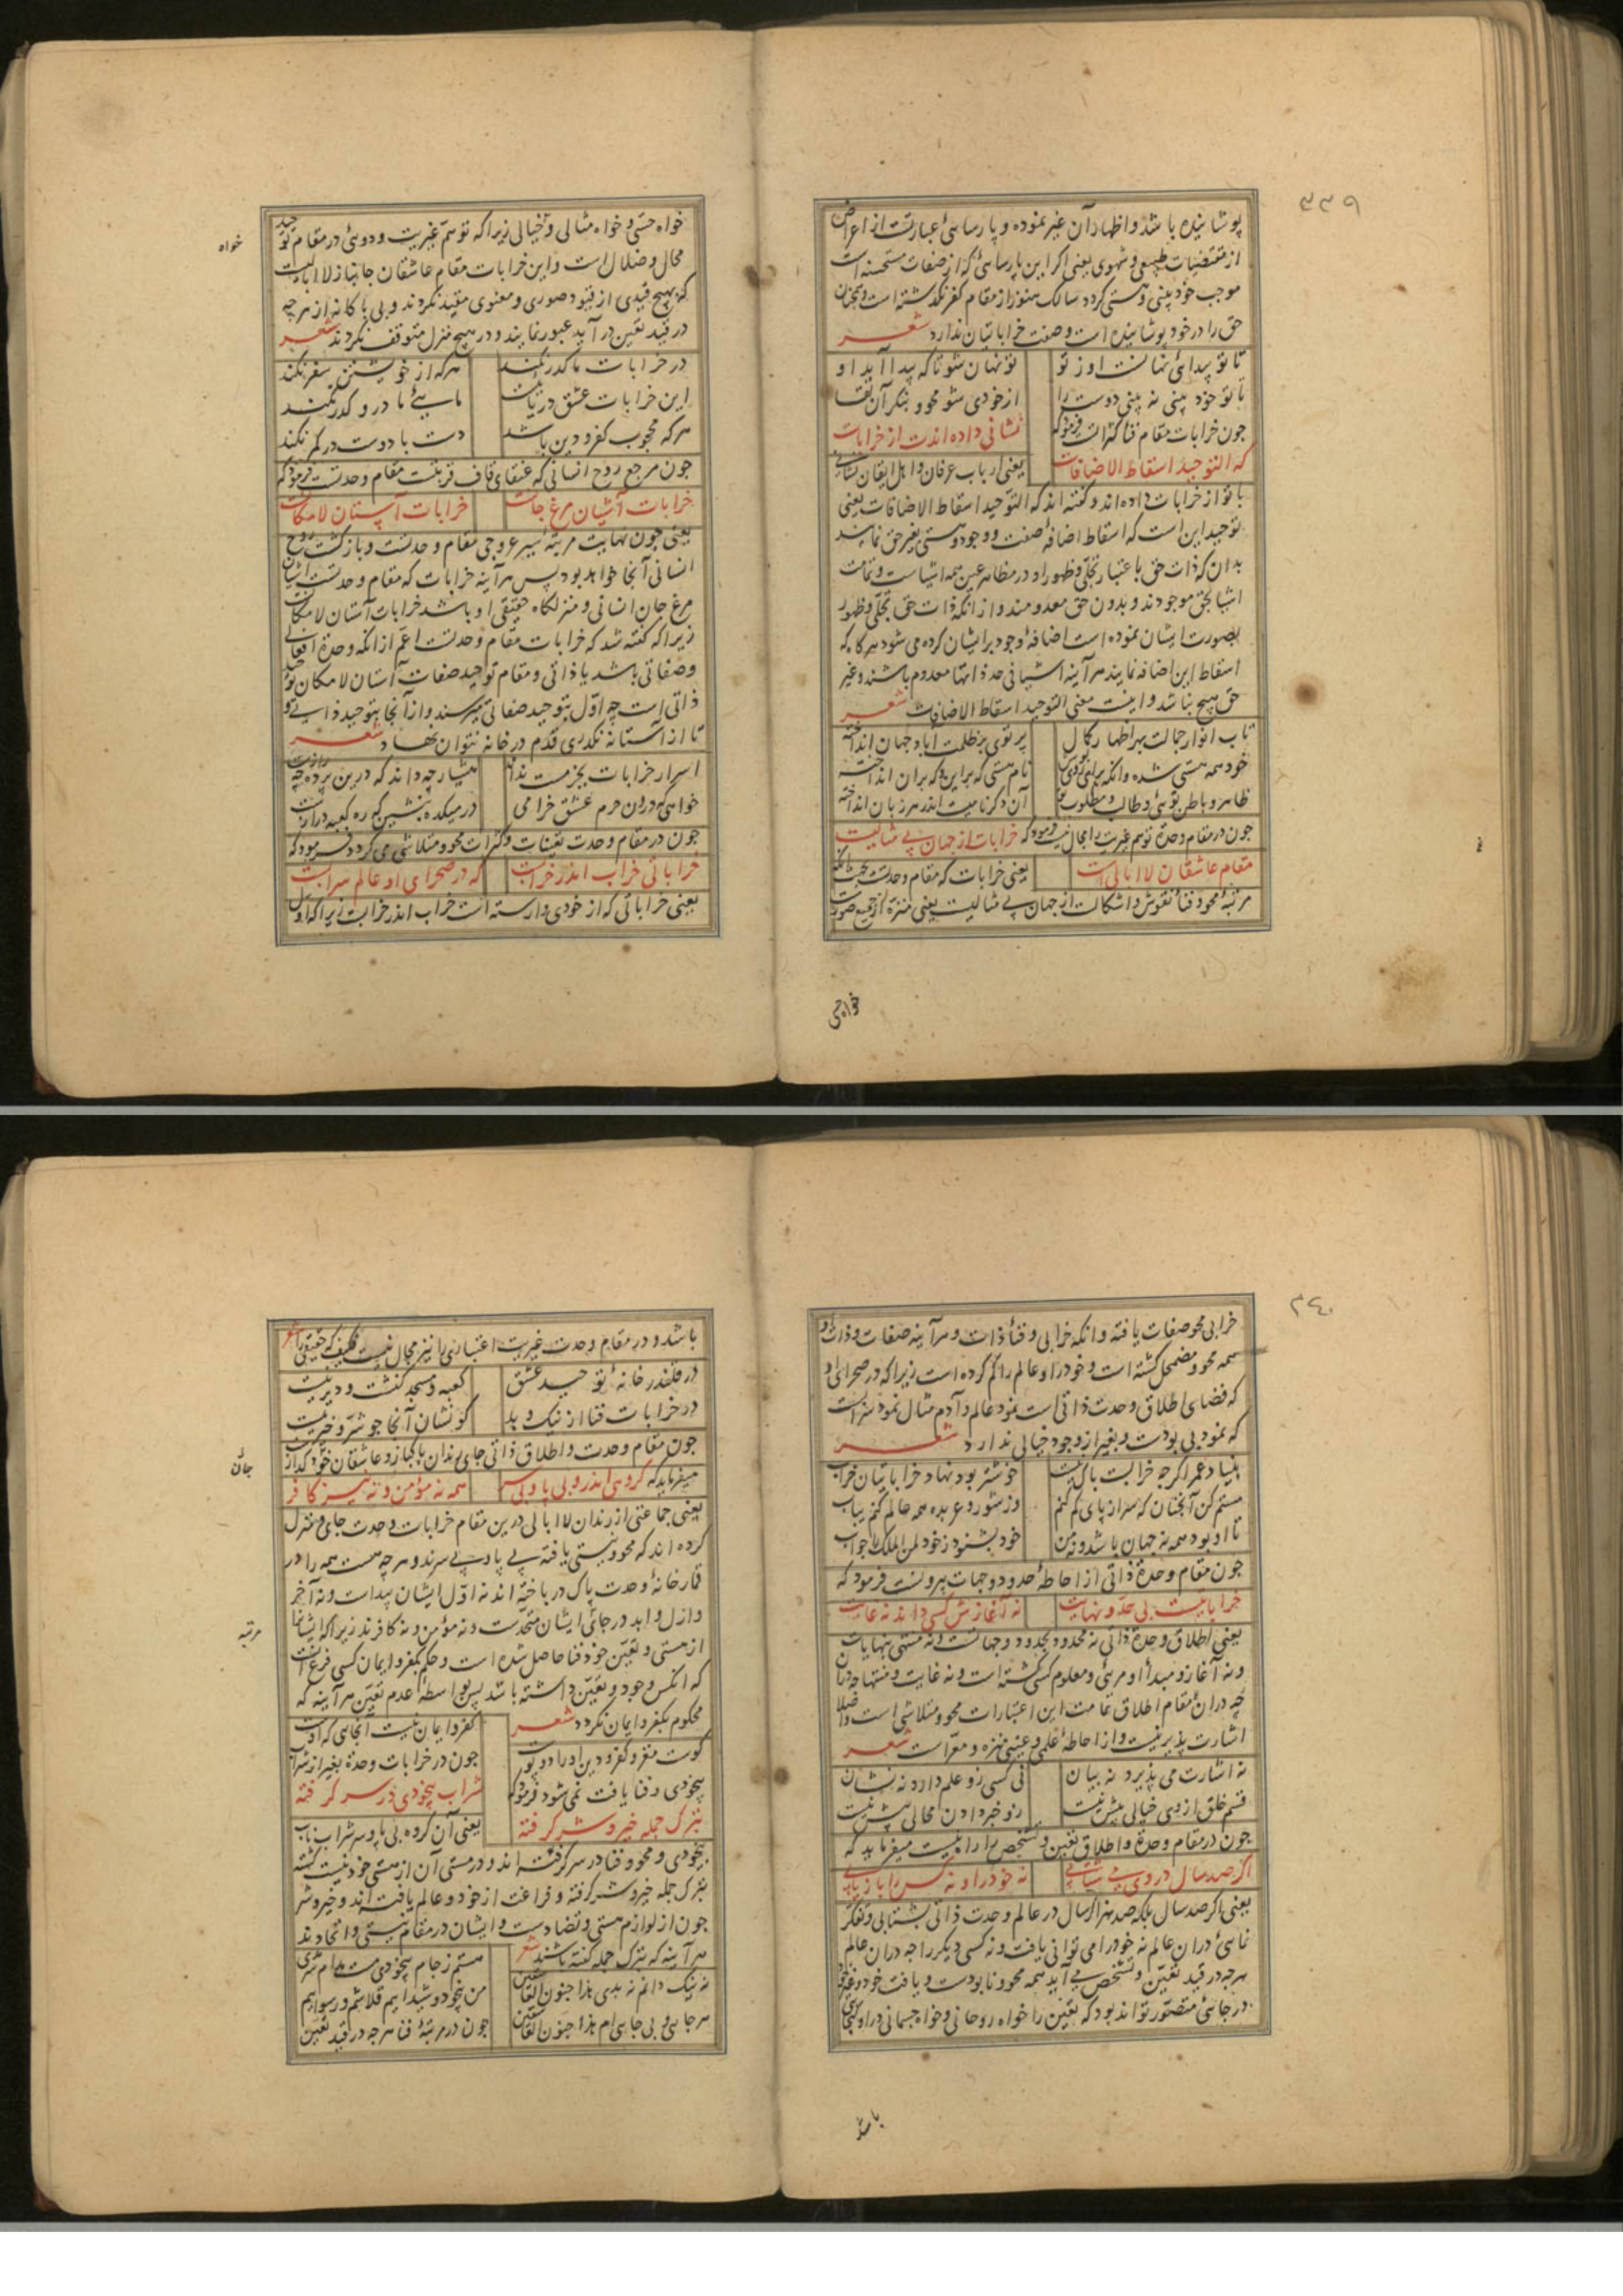 ۳۳۹
پوشانیده باشد و اظهار آن غیر نموده و پارسائی عبارتست از اعراض
از مقتضیات طبیعی و شهوی یعنی اگر این پارسائی که از صفات مستحسنه است
موجب خودبینی و هستی گردد سالک هنوز از مقام کفر نگذشته است و همچنان
حق را در خود پوشانیده است و صفت خراباتیان ندارد شعر
تا تو پیدائی نهانست او ز تو تو نهان شو تا که پیدا آید او
تا تو خود بینی نه بینی دوست را از خودی شو محو و بنگر آن لقا
چون خرابات مقام فنا کثراتست فرمود که نشانی داده اندت از خرابات
که التوحید اسقاط الاضافات یعنی ارباب عرفان و اهل ایقان نشانی
با تو از خرابات داده اند و گفته اند که التوحید اسقاط الاضافات یعنی
توحید این است که اسقاط اضافهٔ صفت و وجود و هستی بغیر حق نمایند
بدان که ذات حق باعتبار تجلی و ظهور او در مظاهر عین همه اشیاست و تمامت
اشیا بحق موجودند و بدون حق معدومند و از آنکه ذات حق تجلی و ظهور
بصورت ایشان نموده است اضافهٔ وجود برایشان کرده می شود هرگاه که
اسقاط این اضافه نمایند هر آینه اشیا فی حد ذاتها معدوم باشند و غیر
حق هیچ نباشد و اینست معنی التوحید اسقاط الاضافات شعر
تاب انوار جمالت بهر اظهار کمال پرتوی بر ظلمت آباد جهان انداخته
خود همه هستی شده وانگه برای روپوش نام هستی گه براین و گه بران انداخته
ظاهر و باطن توئی و طالب و مطلوب تو آن دگر نامیست اندر هر زبان انداخته
چون در مقام وحدة توهم غیریت را مجال نیست فرمود که خرابات از جهان بی مثالیست
مقام عاشقان لاابالی است یعنی خرابات که مقام وحدتست بحیث آنکه
مرتبهٔ محو و فنا نقوش و اشکالست از جهان بی مثالیست یعنی منزه از جمیع صورت
خواه حسی
خواه حسی و خواه مثالی و خیالی زیرا که توهم غیریت و دوئی در مقام توحید
محال و ضلال است و این خرابات مقام عاشقان جانباز لاابالیست
که بهیچ قیدی از قیود صوری و معنوی مقید نگردند و بی باکانه از هر چه
در قید تعین در آید عبور نمایند و در هیچ منزل متوقف نگردند شعر
در خرابات ما گذر نکند هرکه از خویشتن سفر نکند
این خرابات عشق دریائیست ماهئ ما درو گذر نکند
هرکه محجوب کفر و دین باشد دست با دوست در کمر نکند
چون مرجع روح انسانی که عنقای قاف قربتست مقام وحدتست فرمود که
خرابات آشیان مرغ جانست خرابات آستان لامکانست
یعنی چون نهایت مرتبهٔ سیر عروجی مقام وحدتست و بازگشت روح
انسانی آنجا خواهد بود پس هر آینه خرابات که مقام وحدتست آشیان
مرغ جان انسانی و منزلگاه حقیقی او باشد خرابات آستان لامکانست
زیرا که گفته شد که خرابات مقام وحدتست اعم از آنکه وحدة افعالی
و صفاتی باشد یا ذاتی و مقام توحید صفات آستان لامکان توحید
ذاتی است چه اول بتوحید صفاتی میرسند و از آنجا بتوحید ذاتی و
تا از آستانه نگذری قدم در خانه نتوان نهاد شعر
اسرار خرابات بجز مست نداند هشیار چه داند که درین پرده چه رازست
خواهی که درون حرم عشق خرامی در میکده بنشین که ره کعبه درازست
چون در مقام وحدت تعینات و کثرات محو و متلاشی می گردد فرمود که
خراباتی خراب اندر خرابست که در صحرای او عالم سرابست
یعنی خراباتی که از خودی وارسته است خراب اندر خرابست زیرا که اول
خواه
۳۴۰
خرابی محو صفات یافته و آنکه خرابی و فنا ذات و هر آینه صفات و ذات او
همه محو و مضمحل گشته است و خود را و عالم را گم کرده است زیرا که در صحرای او
که فضای اطلاق وحدت ذاتی است نمود عالم و آدم مثال نمود سرابست
که نمود بی بودست و بغیر از وجود خیالی ندارد شعر
بنیاد عمر اگرچه خرابست باک نیست خوشتر بود نهاد خراباتیان خراب
مستم کن آنچنان که سر از پای گم کنم وز شور و عربده همه عالم کنم یباب
تا او بود همه نه جهان باشد و نه من خود بشنود ز خود لمن الملک را جواب
چون مقام وحدة ذاتی از احاطهٔ حدود و جهات بیرونست فرمود که
خراباتیست بی حد و نهایت نه آغازش کسی داند نه غایت
یعنی اطلاق وحدة ذاتی نه محدود بحدود و جهاتست و نه منتهی بنهایات
و نه آغاز و مبدأ او مرئی و معلوم کسی گشته است و نه غایت و منتهاء آن
چه در آن مقام اطلاق تمامت این اعتبارات محو و متلاشی است و اصلا
اشارت پذیر نیست و از احاطهٔ علمی و عینی منزه و معراست شعر
نه اشارت می پذیرد نه بیان نی کسی زو علم دارد نه نشان
قسم خلق از وی خیالی بیش نیست زو خبر دادن محالی بیش نیست
چون در مقام وحدة و اطلاق تعین و تشخص را راه نیست میفرماید که
اگر صد سال در وی می شتابی نه خود را و نه کس را باز یابی
یعنی اگر صد سال بلکه صد هزار سال در عالم وحدت ذاتی بشتابی و تفکر
نمائی در آن عالم نه خود را می توانی یافت و نه کسی دیگر را چه در آن عالم
هرچه در قید تعین و تشخص می آید همه محو و نابودست و یافت خود و غیر خود
در جائی متصور تواند بود که تعین را خواه روحانی و خواه جسمانی در او گنجائی
باشد
باشد و در مقام وحدت غیریت اعتباری را نیز مجال نیست فکیف که حقیقی را شعر
در قلندر خانهٔ توحید عشق کعبه و مسجد کنشت و دیر نیست
در خرابات فنا از نیک و بد کو نشان آنجا چو شر و خیر نیست
چون مقام وحدت و اطلاق ذاتی جای رندان پاکباز و عاشقان خود گداز است
میفرماید که گروهی اندرو بی پا و بی سر همه نه مؤمن و نه نیز کافر
یعنی جماعتی از رندان لاابالی درین مقام خرابات وحدت جای و منزل
کرده اند که محو و نیستی یافته بی پا و بی سرند و هر چه هست همه را در
قمارخانهٔ وحدت پاک در باخته اند نه اول ایشان پیداست و نه آخر
و ازل و ابد در جائی ایشان متحدست و نه مؤمن و نه کافرند زیرا که ایشانرا
از هستی و تعین خود فنا حاصل شده است و حکم بکفر و ایمان کسی فرع آنست
که آنکس وجود و تعین داشته باشد پس بواسطهٔ عدم تعین هر آینه که
محکوم بکفر و ایمان نگردد شعر کفر و ایمان نیست آنجائی که اوست
گوست مغز و کفر و دین او را دو پوست چون در خرابات وحدة بغیر از شراب
بیخودی و فنا یافت نمی شود فرمود که شراب بیخودی در سر گرفته
بترک جمله خیر و شر گرفته یعنی آن گروه بی پا و سر شراب ناب
بیخودی و محو و فنا در سر گرفته اند و در مستی آن از هستی خود نیست گشته
بترک جمله خیر و شر گرفته و فراغت از خود و عالم یافته اند و خیر و شر
چون از لوازم هستی و تضادست و ایشان در مقام نیستی و اتحادند
هر آینه که بترک جمله گفته باشند شعر مستم ز جام بیخودی
نه نیک دانم نه بدی هذا جنون العاشقین من بیخود و شیدائیم قلاشم و رسوائیم
هر جائی و بی جائی ام هذا جنون العاشقین چون در مرتبهٔ فنا هر چه در قید تعین
جائی
مرتبه